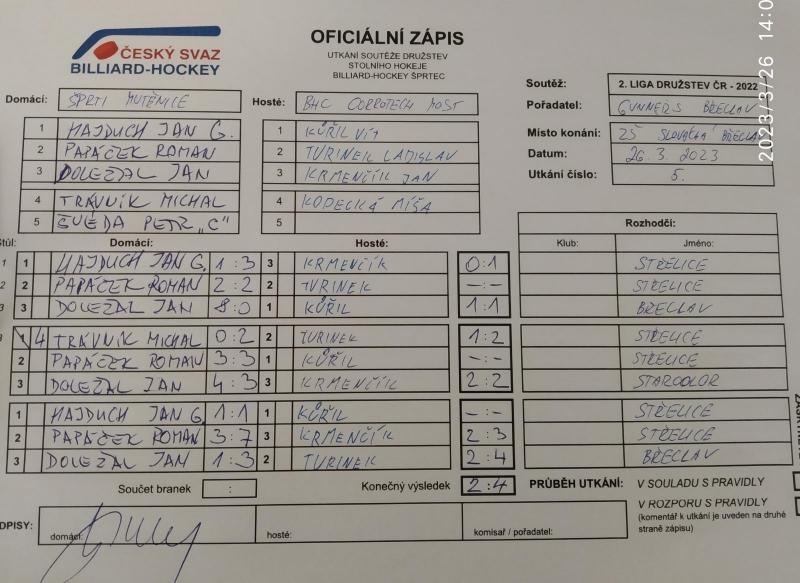 ČESKÝ SVAZ
BILLIARD-HOCKEY
OFICIÁLNÍ ZÁPIS
UTKÁNÍ SOUTĚŽE DRUŽSTEV
STOLNÍHO HOKEJE
BILLIARD-HOCKEY ŠPRTEC
2023/3/26 14:0
Soutěž: 2. LIGA DRUŽSTEV ČR - 2022
Pořadatel: GUNNERS BŘECLAV
Místo konání: ZŠ SLOVÁCKÁ BŘECLAV
Datum: 26.3. 2023
Utkání číslo: 5.
Domácí: ŠPRTI MUTĚNICE Hosté: BHC DORROTECH MOST
1 HAJDUCH JAN G. 1 KŮŘIL VÍT
2 PAPÁČEK ROMAN 2 TURINEK LADISLAV
3 DOLEŽAL JAN 3 KRMENČÍK JAN
4 TRÁVNÍK MICHAL 4 KODECKÁ MÍŠA
5 ŠVÉDA PETR „C" 5
Rozhodčí:
Stůl: Domácí: Hosté: Klub: Jméno:
1 1 HAJDUCH JAN G. 1:3 3 KRMENČÍK 0:1 STŘELICE
2 2 PAPÁČEK ROMAN 2:2 2 TURINEK -:- STŘELICE
3 3 DOLEŽAL JAN 8:0 1 KŮŘIL 1:1 BŘECLAV
1 4 TRÁVNÍK MICHAL 0:2 2 TURINEK 1:2 STŘELICE
2 PAPÁČEK ROMAN 3:3 1 KŮŘIL -:- STŘELICE
3 DOLEŽAL JAN 4:3 3 KRMENČÍK 2:2 STARCOLOR
1 HAJDUCH JAN G. 1:1 1 KŮŘIL -:- STŘELICE
2 PAPÁČEK ROMAN 3:7 3 KRMENČÍK 2:3 STŘELICE
3 DOLEŽAL JAN 1:3 2 TURINEK 2:4 BŘECLAV
Součet branek : Konečný výsledek 2:4 PRŮBĚH UTKÁNÍ: V SOULADU S PRAVIDLY
V ROZPORU S PRAVIDLY
(komentář k utkání je uveden na druhé
straně zápisu)
DPISY: domácí: hosté: komisař / pořadatel: